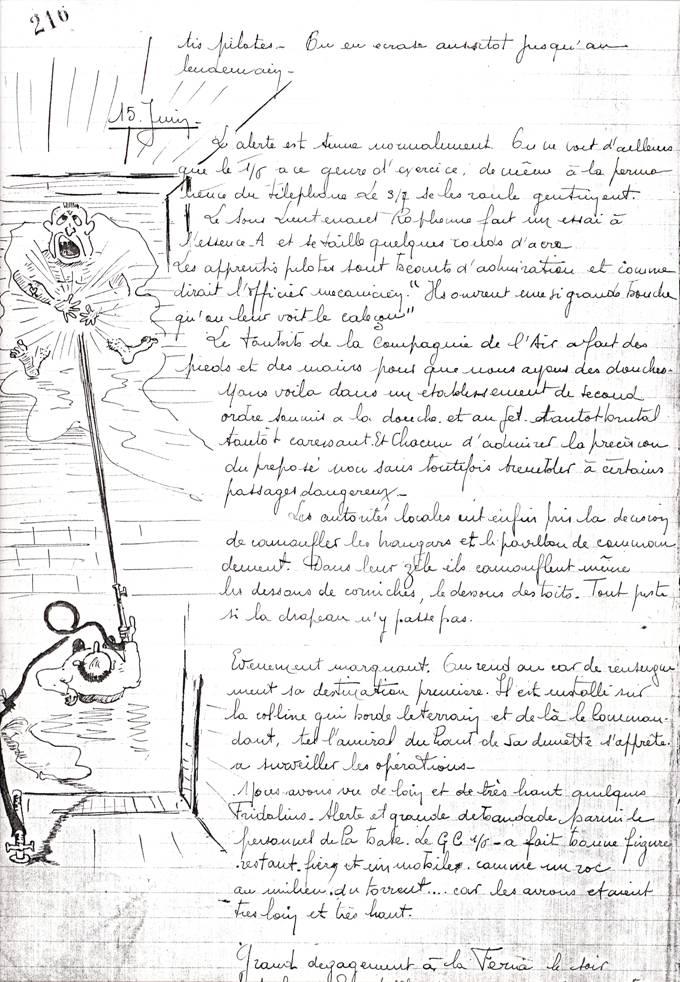 210
tis pilotes - On en écrase aussitot jusqu'au
lendemain -
15. Juin -
L'alerte est tenue normalement. On ne voit d'ailleurs
que le 1/5 a ce genre d'exercice, de même à la perma
nence du téléphone Le 3/7 se les roule gentiment.
Le Sous Lieutenant fait un essai à
l'essence A et se taille quelques ronds d'acro
Les apprentis pilotes sont béants d'admiration et comme
dirait l'officier mecanicien "Ils ouvrent une si grande bouche
qu'on leur voit le caleçon"
Le de la Compagnie de l'Air a fait des
pieds et des mains pour que nous ayons des douches.
Nous voila dans un etablissement de second
ordre soumis a la douche et au jet. tantot brutal
tantôt caressant. Et Chacun d'admirer la precision
du preposé non sans toutefois trembler à certains
passages dangereux -
Les autorités locales ont enfin pris la decision
de camoufler les hangars et le pavillon de comman
dement. Dans leur zèle ils camouflent même
les dessous de corniches, le dessous des toits. Tout juste
si la drapeau n'y passe pas.
Evenement marquant. On rend au car de renseigne
ment sa destination premiere. Il est installé sur
la colline qui borde le terrain et de là le Comman-
dant, tel l'amiral du haut de sa dunette s'apprête
a surveiller les opérations -
Nous avons vu de loin et de très haut quelques
Fridolins. Alerte et grande debandade parmi le
personnel de la base. Le GC 1/5 - a fait bonne figure
restant fier et immobile, comme un roc
au milieu du torrent.... car les avions etaient
tres loin et très haut.
Grand degagement à la Feria le soir